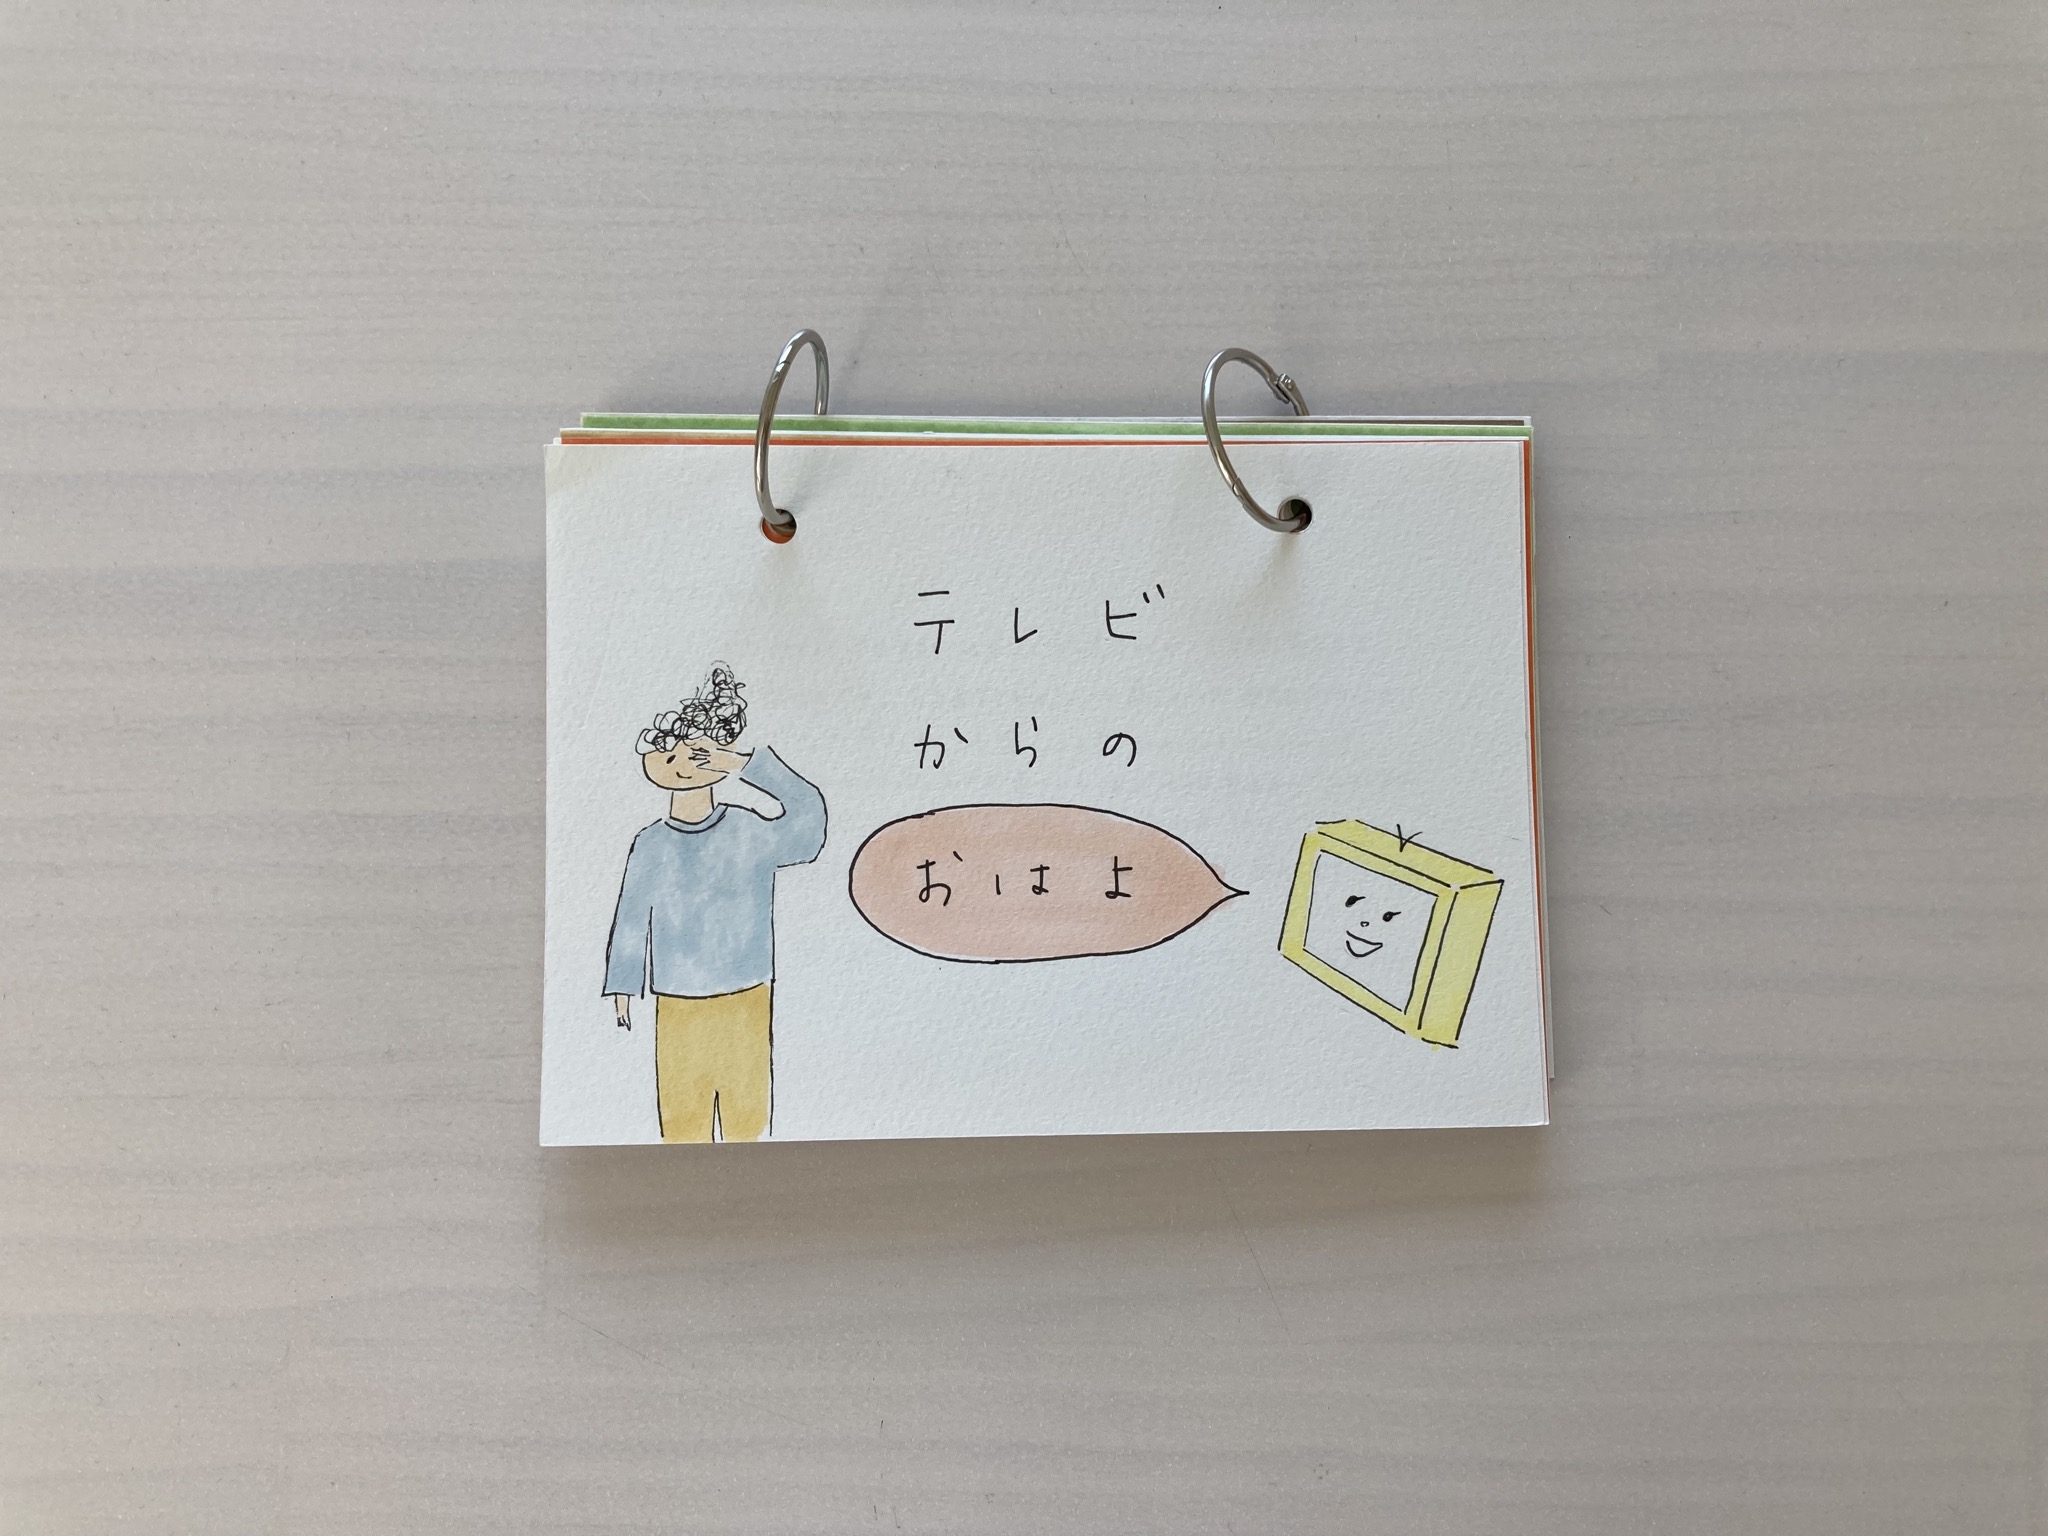 テレビ
からの
おはよ